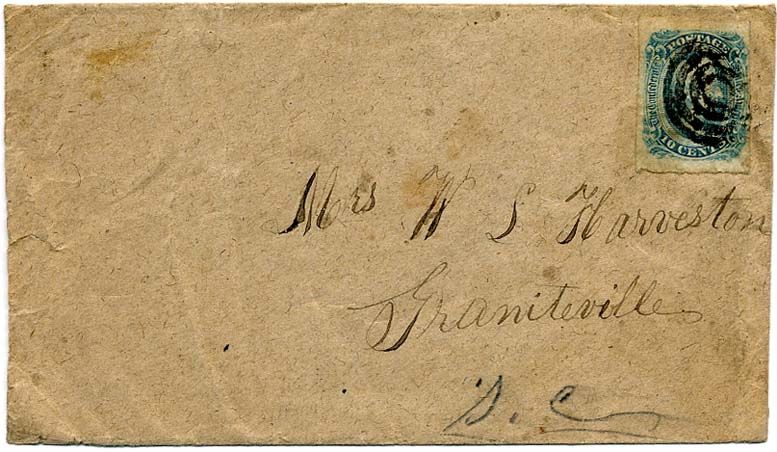 POSTAGE
The Confederate
10 CENTS
Mrs W S Harveston
Graniteville
S. C